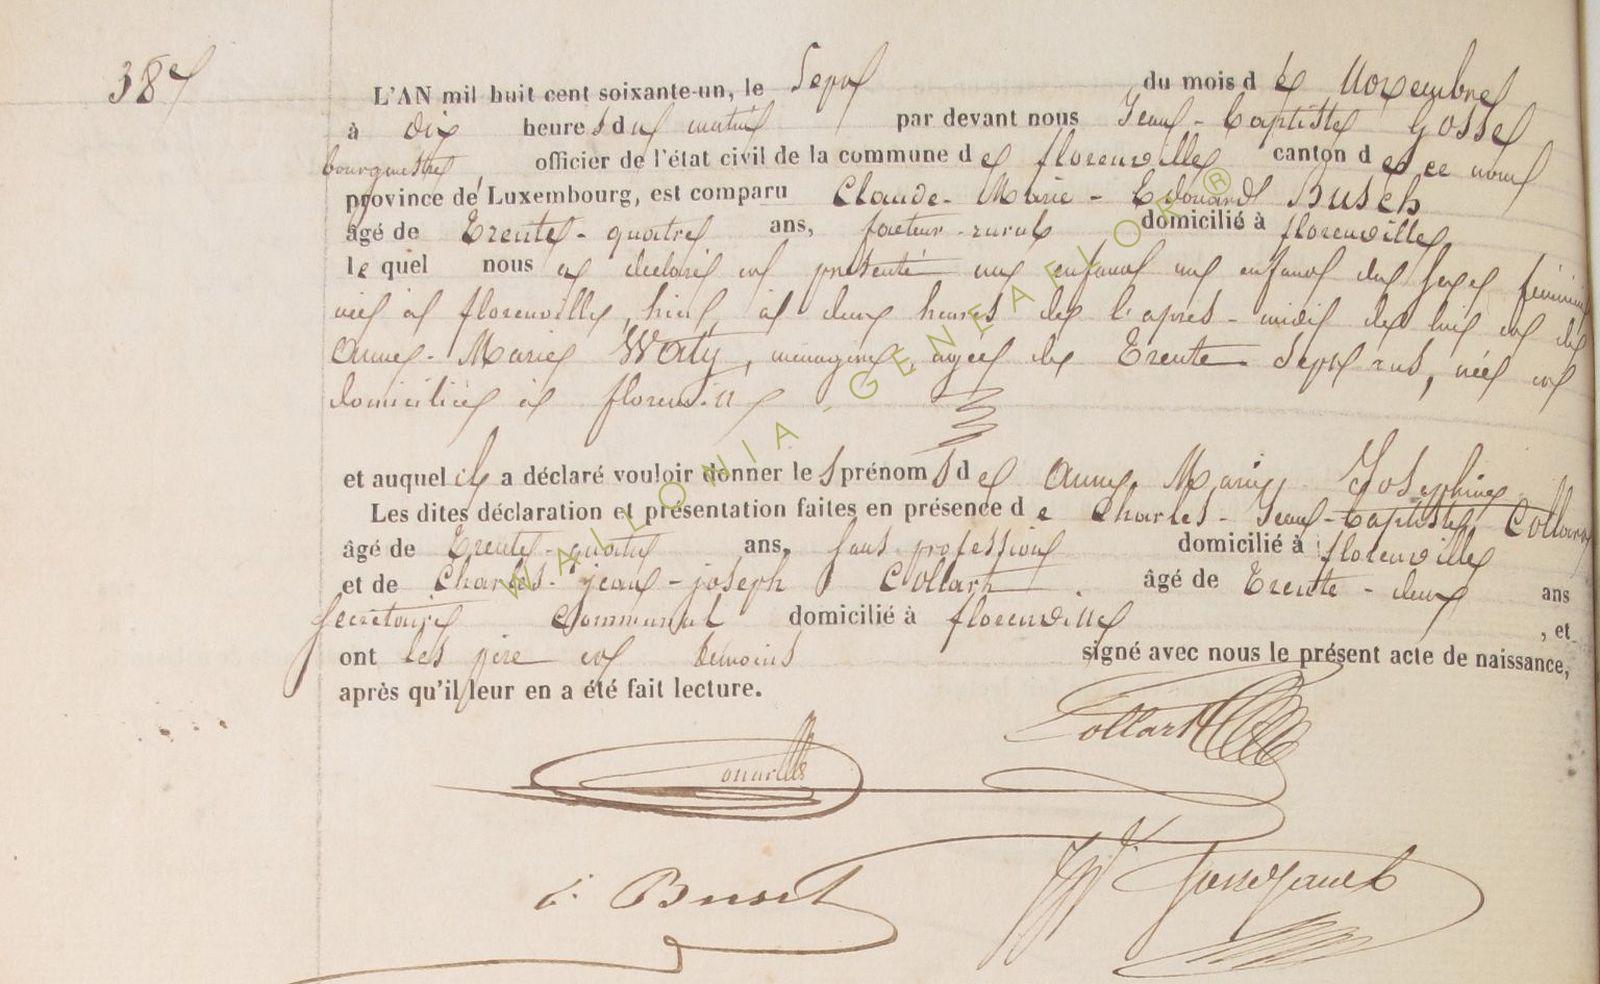 387
L'AN mil huit cent soixante-un, le Sept du mois de Novembre
à Dix heures du matin par devant nous Jean-Baptiste Gosse
bourgmestre, officier de l'état civil de la commune de florenville canton de ce nom
province de Luxembourg, est comparu Claude-Marie-Edouard Busch
âgé de Trente-quatre ans, facteur-rural domicilié à florenville
lequel nous a déclaré et présenté un enfant du sexe féminin
née à florenville, hier, à deux heures de l'après-midi de lui et de
Anne-Marie Waty, ménagère, agée de Trente Sept ans, née et
domiciliée à florenville
et auquel il a déclaré vouloir donner les prénoms de Anne Marie Josephine
Les dites déclaration et présentation faites en présence de Charles-Jean-Baptiste Collart
âgé de Trente-quatre ans, Sans profession domicilié à florenville
et de Charles-jean-joseph Collart âgé de Trente-deux ans
Secrétaire Communal domicilié à florenville, et
ont les père et témoins signé avec nous le présent acte de naissance,
après qu'il leur en a été fait lecture.
Collart
WALLONIA-GENEALOR ®